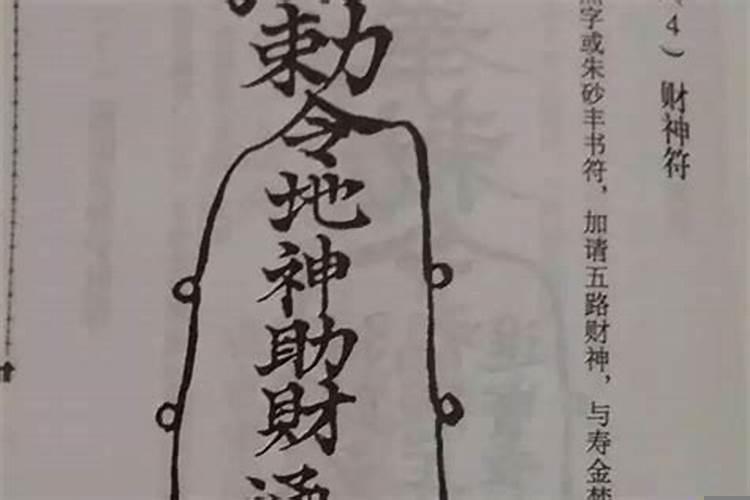 4）财神符
字或朱砂丰书符，加请五路财神，与寿金
敕令地神助財通